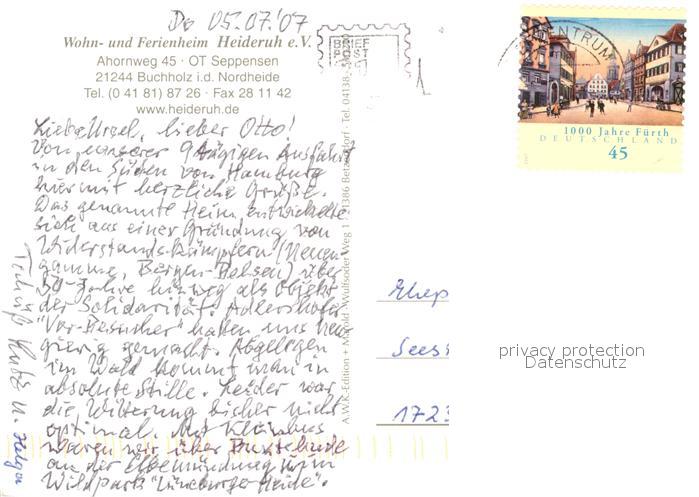 Do 05.07.'07
Wohn- und Ferienheim Heideruh e.V.
Ahornweg 45 · OT Seppensen
21244 Buchholz i.d. Nordheide
Tel. (0 41 81) 87 26 · Fax 28 11 42
www.heideruh.de
Liebe Ursel, lieber Otto!
Von unserer 9tägigen Ausfahrt
in den Süden von Hamburg
hiermit herzliche Grüße.
Das genannte Heim entwickelte
sich aus einer Gründung von
Widerstands-Kämpfern (Neuen-
gamme, Bergen-Belsen) über
50 Jahre hinweg als Objekt
der Solidarität. Adlershofer
"Vor-Besucher" hatten uns neu-
gierig gemacht. Abgelegen
im Wald kommt man in
absolute Stille. Leider war
die Witterung bisher nicht
optimal. Mit Kleinbus
waren wir über Buxtehude
an der Elbemündung u. im
Wildpark "Lüneburger Heide".
Tschüß u. Helga
A.W.K-Edition + Wulfsoder Weg 1 · 21386 Betzendorf · Tel. 04138
BRIEF
POST
ZENTRUM
1000 Jahre Fürth
DEUTSCHLAND
45
Ehep
Sees
1723
privacy protection
Datenschutz